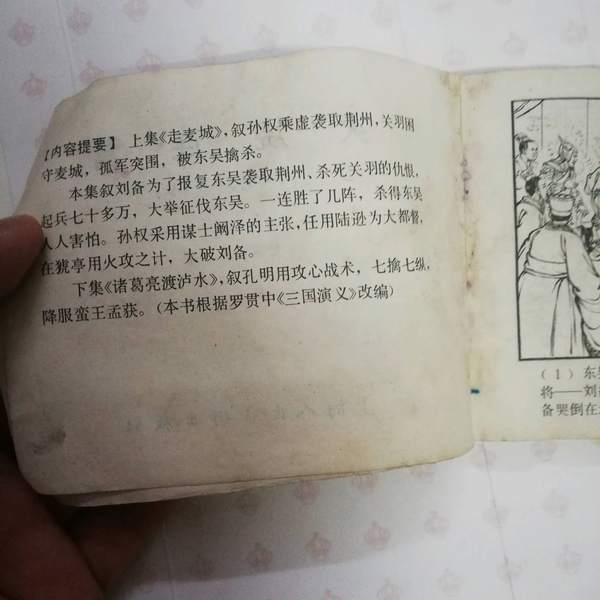 【内容提要】 上集《走麦城》，叙孙权乘虚袭取荆州，关羽困
守麦城，孤军突围，被东吴擒杀。
本集叙刘备为了报复东吴袭取荆州、杀死关羽的仇恨，
起兵七十多万，大举征伐东吴。一连胜了几阵，杀得东吴
人人害怕。孙权采用谋士阚泽的主张，任用陆逊为大都督，
在猇亭用火攻之计，大破刘备。
下集《诸葛亮渡泸水》，叙孔明用攻心战术，七擒七纵，
降服蛮王孟获。（本书根据罗贯中《三国演义》改编）
（1）东
将——刘
备哭倒在